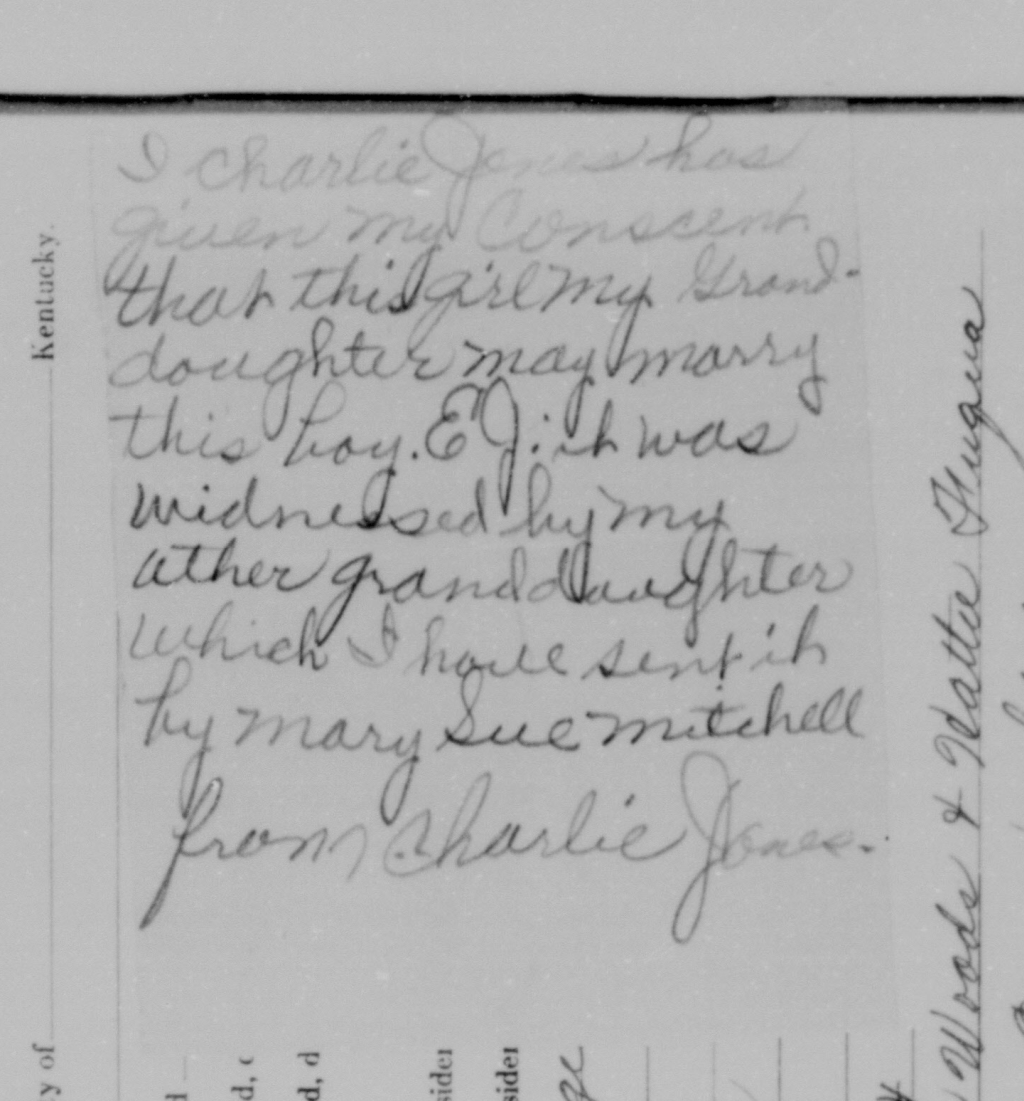 I Charlie Jones has
given my Conscent
that this girl my Grand-
doughter may marry
this boy. E J. it was
widnessed by my
ather granddaughter
which I have sent it
by mary Sue mitchell
from Charlie Jones.
Kentucky.
y of
d
d, c
d, d
sider
sider
Woods & Hattie Fuqua